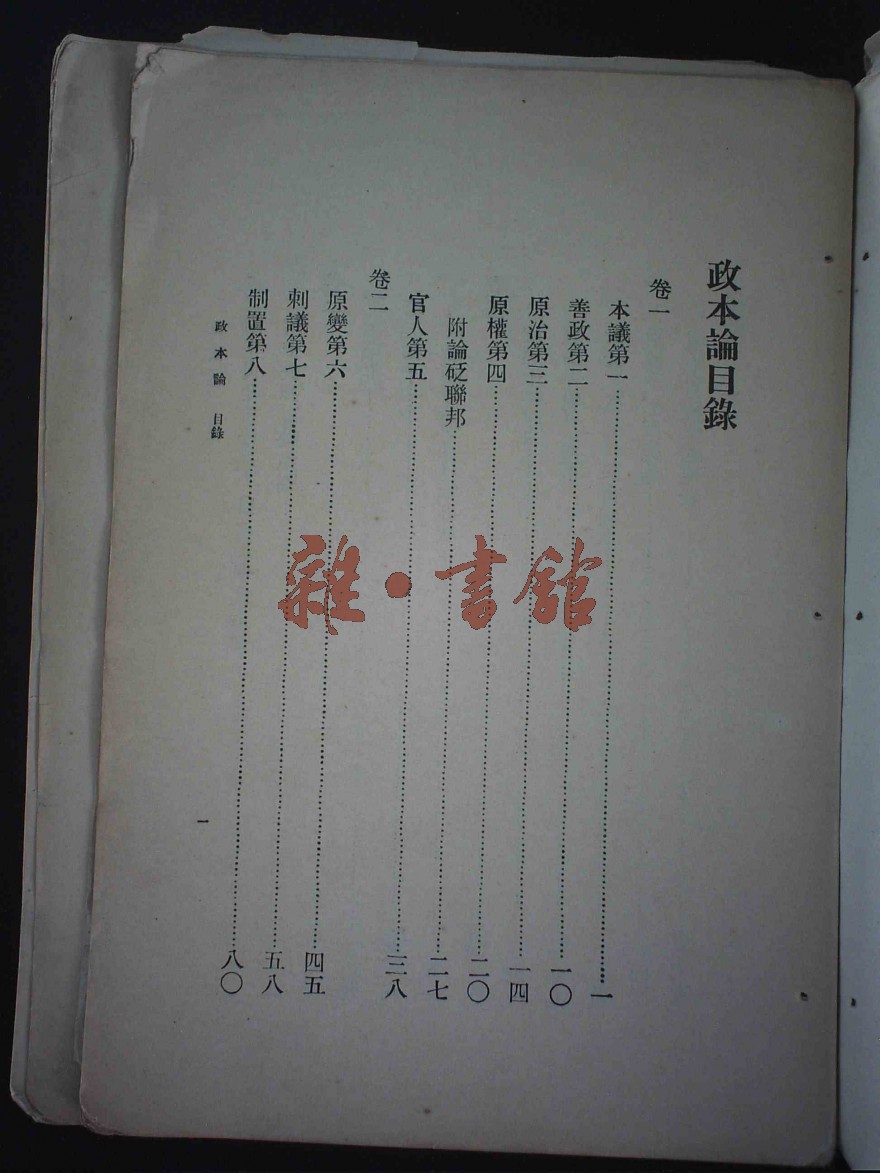 政本論目錄
卷一
本議第一……一
善政第二……一〇
原治第三……一四
原權第四……二〇
附論砭聯邦……二七
官人第五……三八
卷二
原變第六……四五
刺議第七……五八
制置第八……八〇
政本論 目錄
一
雜·書館